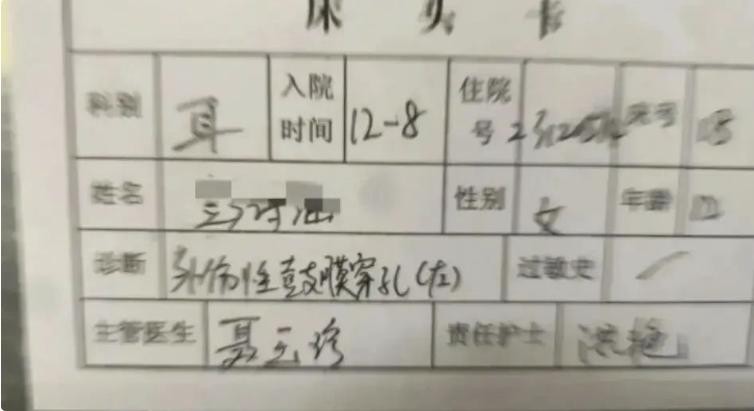 床头卡
科别 耳 入院时间 12-8 住院号 床号
姓名 性别 女 年龄 12
诊断 外伤性鼓膜穿孔(左) 过敏史 /
主管医生 聂玉珍 责任护士 洪艳